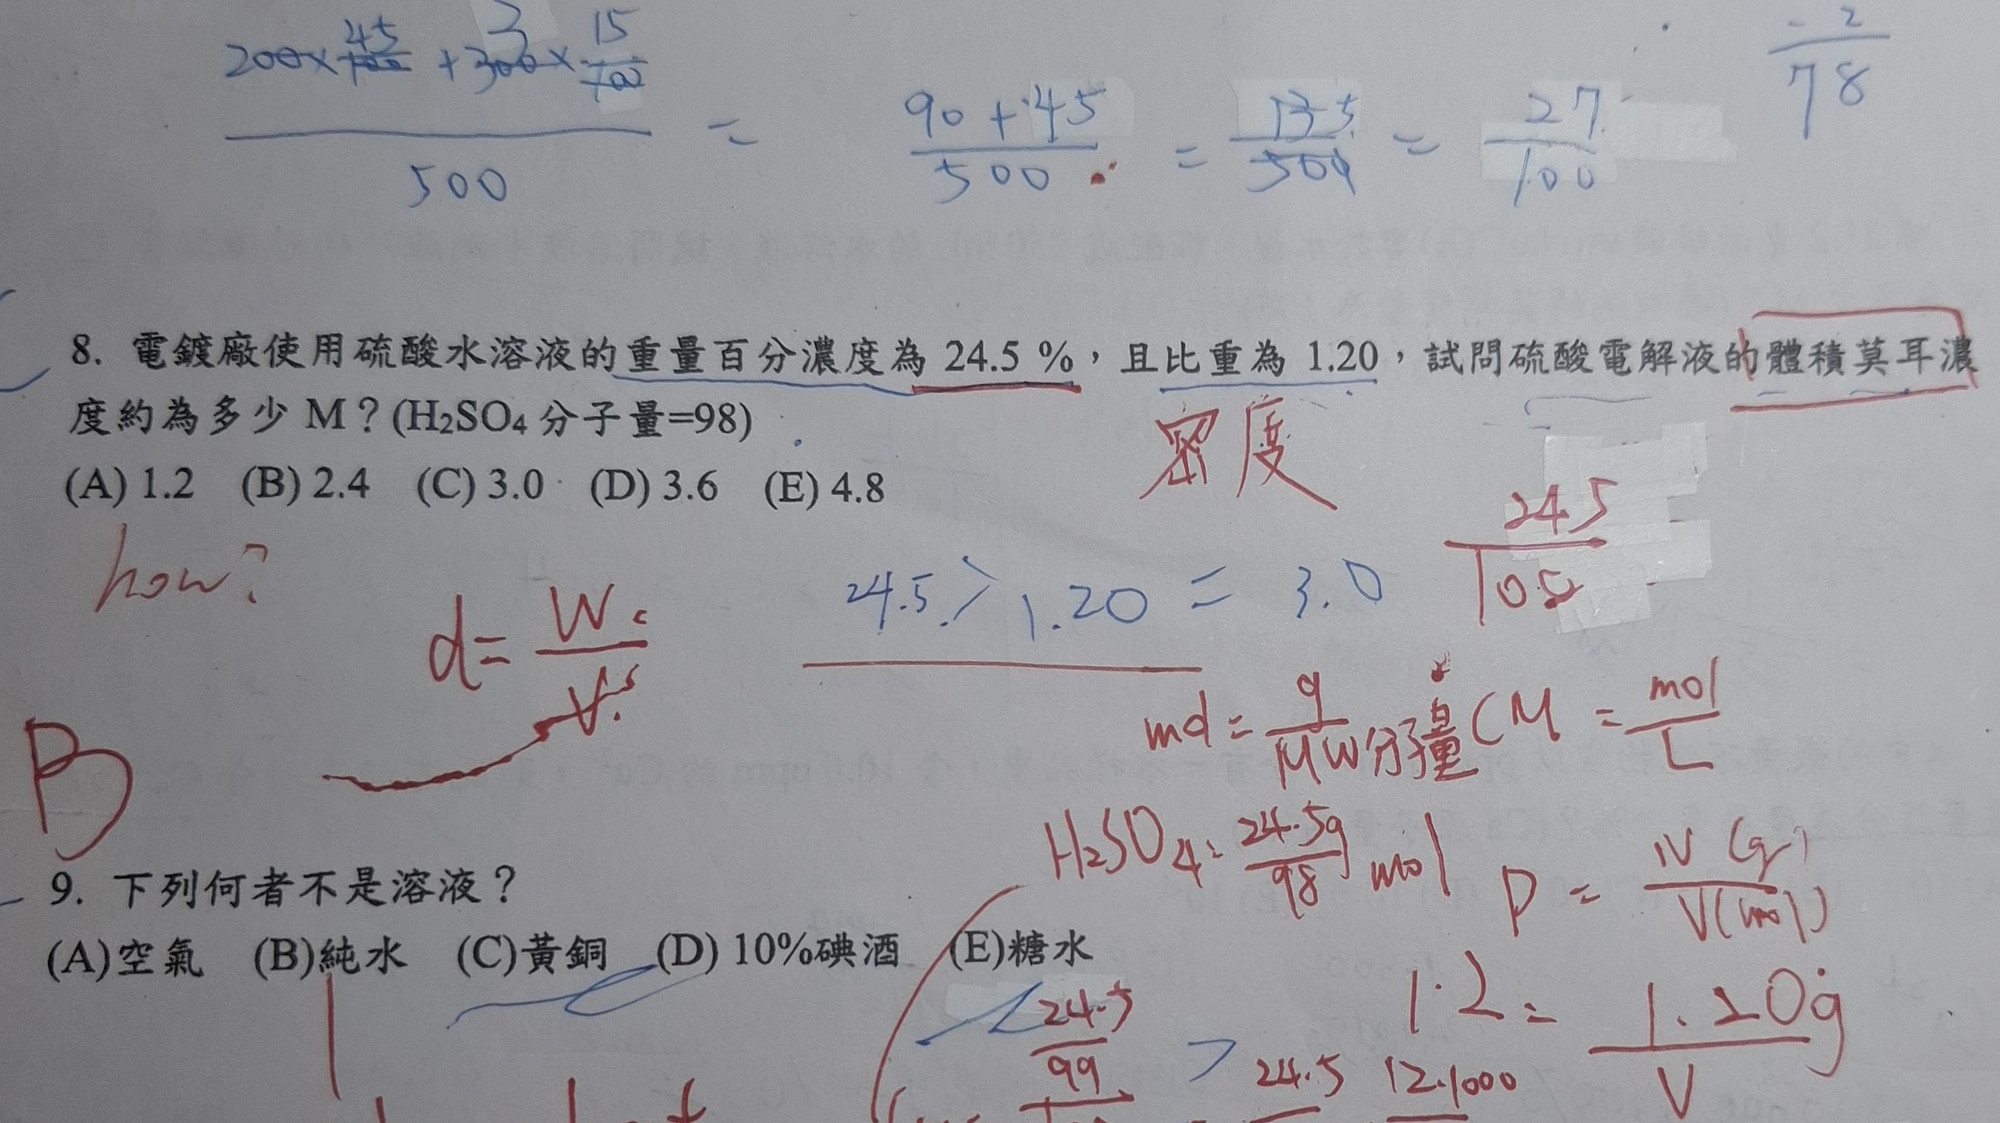 200×45/100 + 300×15/100 / 500 = 90+45/500 = 135/500 = 27/100
2/78
8. 電鍍廠使用硫酸水溶液的重量百分濃度為 24.5 %，且比重為 1.20，試問硫酸電解液的體積莫耳濃
度約為多少 M？(H₂SO₄ 分子量=98)
密度
(A) 1.2 (B) 2.4 (C) 3.0 (D) 3.6 (E) 4.8
how?
24.5
d= W/V
24.5 1.20 = 3.0
md = g/MW分子量 CM = mol/L
B
H₂SO₄: 24.5g/98 mol
9. 下列何者不是溶液？
(A)空氣 (B)純水 (C)黃銅 (D) 10%碘酒 (E)糖水
1.2 = 1.20g/V
24.5/99
24.5 12.1000